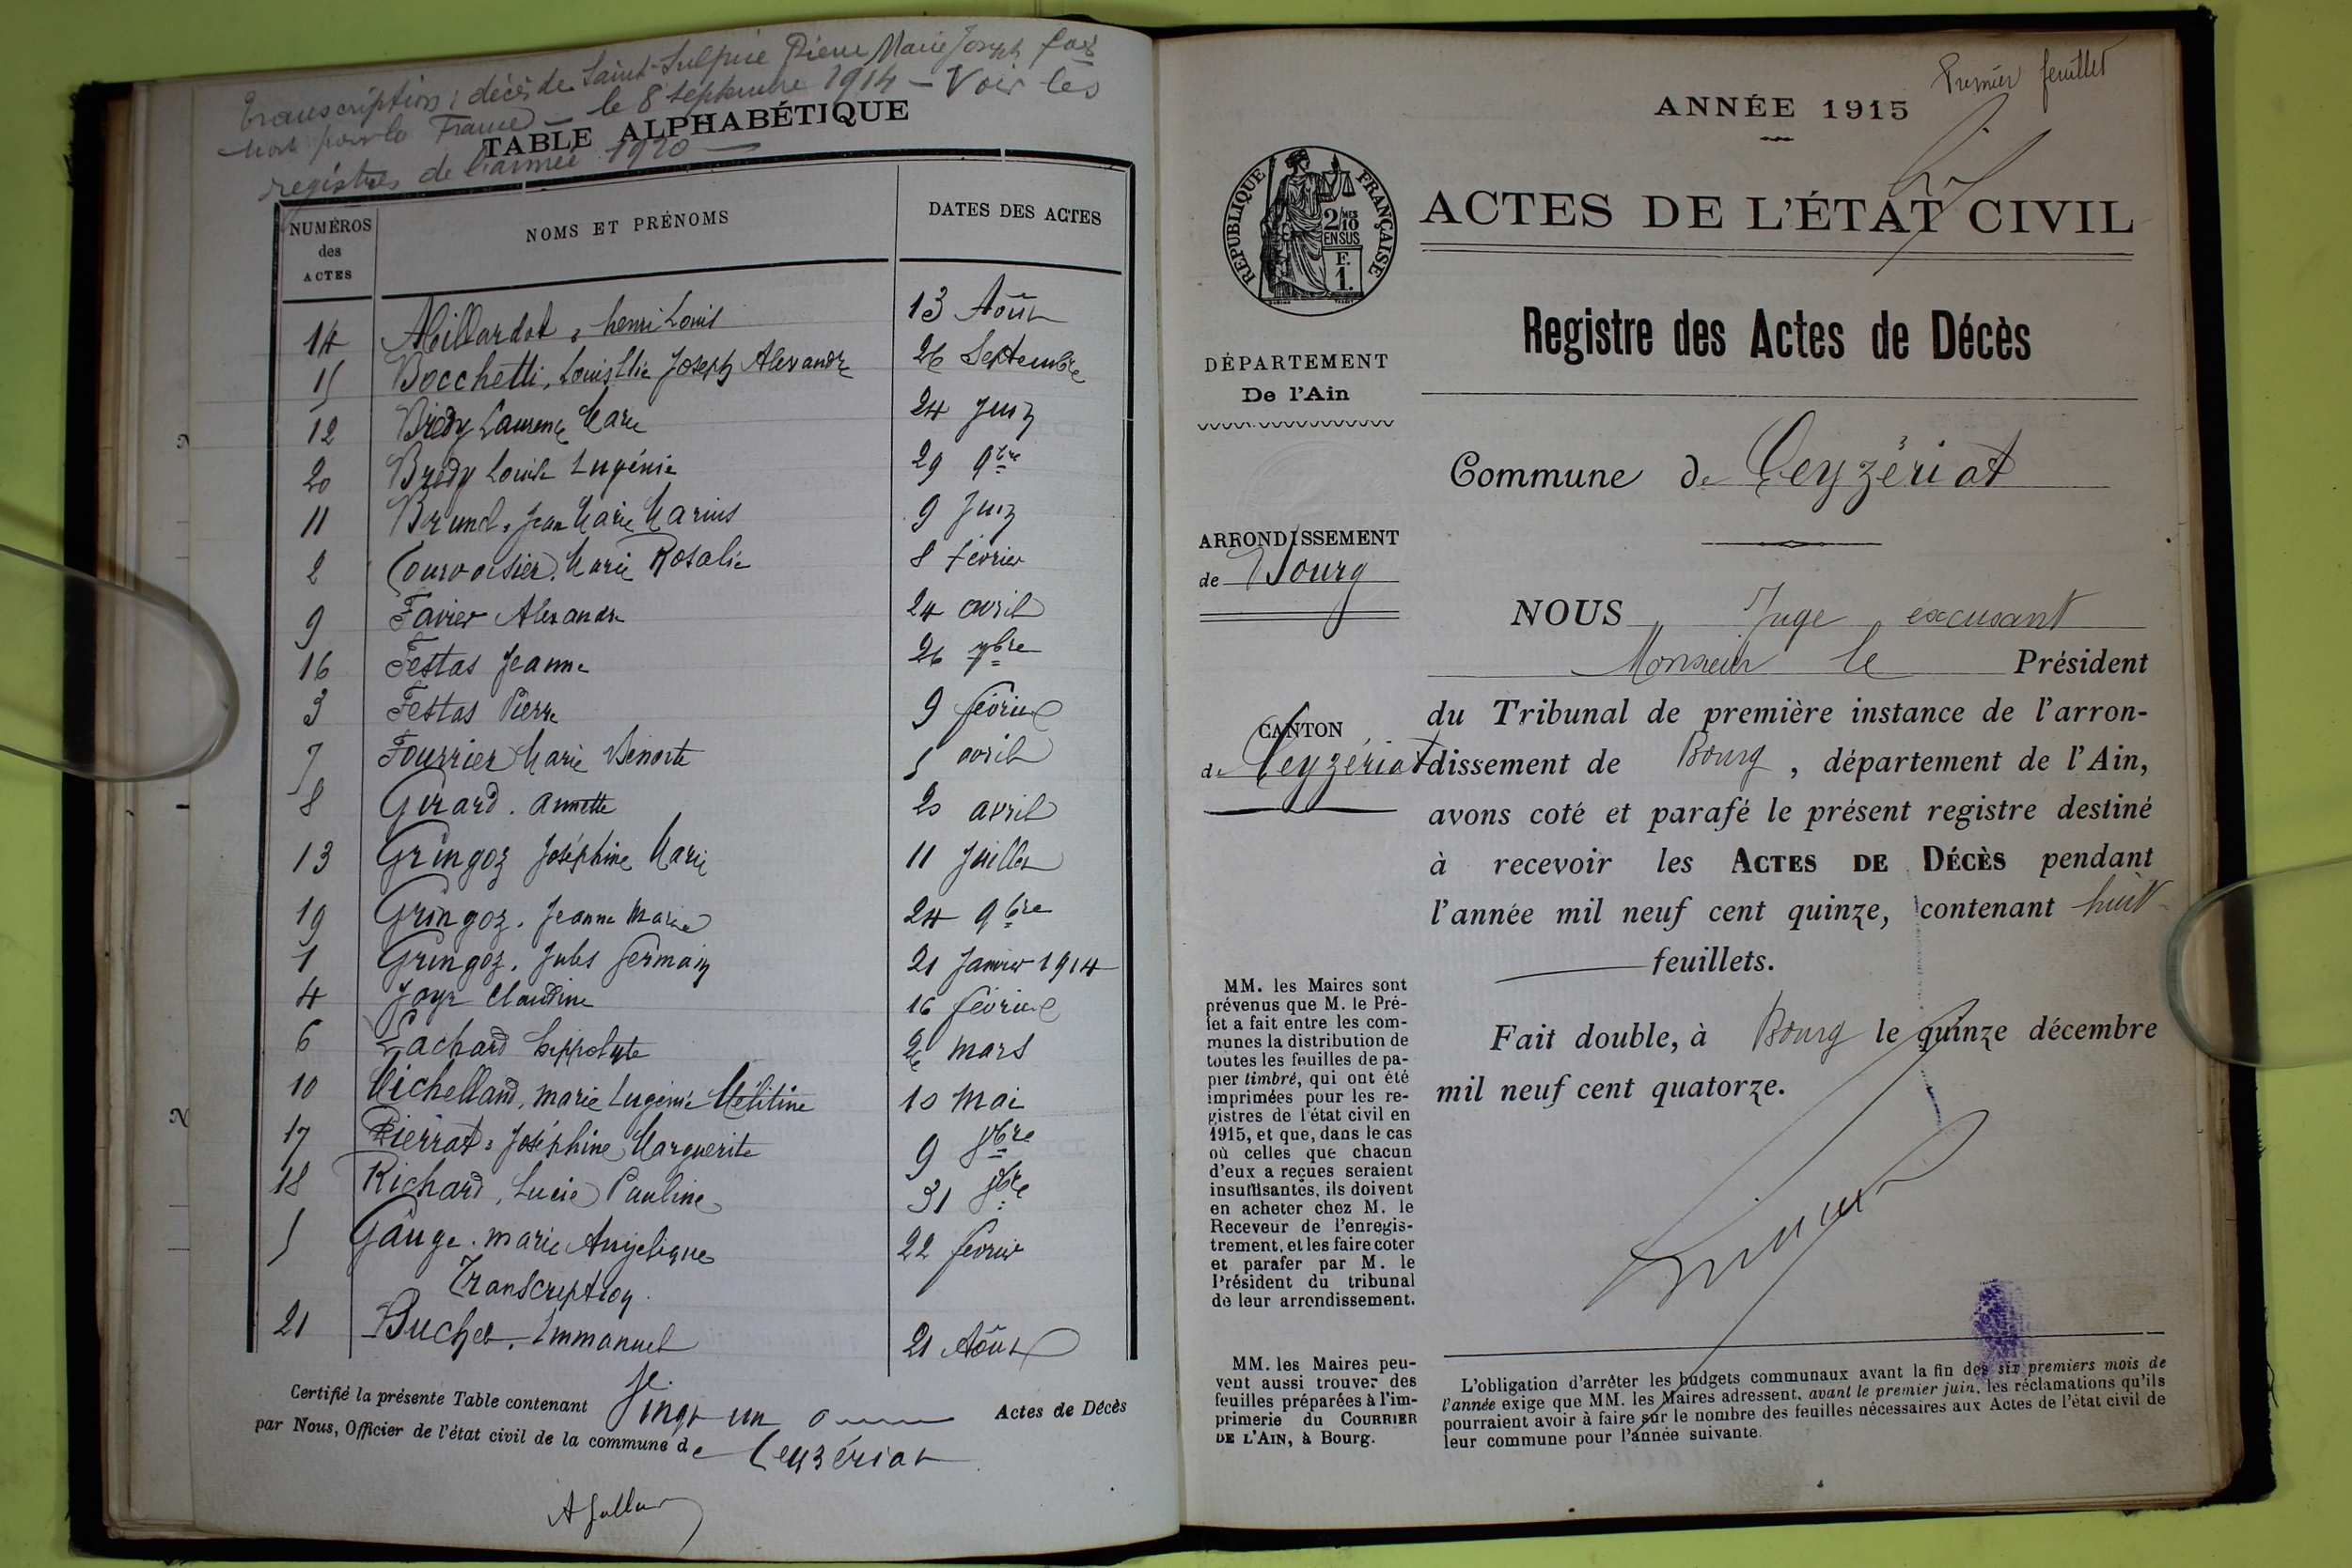 Transcription : décès de Saint-Sulpice Pierre Marie Joseph
mort pour la France - le 8 septembre 1914 - Voir les
registres de l'année 1920 -
TABLE ALPHABÉTIQUE
NUMÉROS des ACTES NOMS ET PRÉNOMS DATES DES ACTES
14 Abillardot, henri Louis 13 Août
15 Bocchetti, Louis Elie Joseph Alexandre 26 Septembre
12 Brédy Laurence Marie 24 Juin
20 Brédy Louise Eugénie 29 9bre
11 Brunel, Jean Marie Marius 9 Juin
2 Courvoisier, Marie Rosalie 8 février
9 Favier Alexandre 24 avril
16 Festas Jeanne 26 7bre
3 Festas Pierre 9 février
7 Fourrier Marie Benoite 5 avril
8 Girard. Annette 20 avril
13 Gringoz Joséphine Marie 11 Juillet
19 Gringoz. Jeanne Marie 24 9bre
1 Gringoz. Jules Germain 21 Janvier 1914
4 Joyr Claudine 16 février
6 Lachard hippolyte 26 mars
10 Michelland, marie Eugénie Mélitine 10 mai
17 Pierrat, Joséphine Marguerite 9 8bre
18 Richard, Lucie Pauline 31 8bre
5 Gauge. marie Angelique 22 février
Transcription.
21 Buchet, Emmanuel 21 Août
Certifié la présente Table contenant Vingt un Actes de Décès
par Nous, Officier de l'état civil de la commune de Ceyzériat
Premier feuillet
ANNÉE 1915
ACTES DE L'ÉTAT CIVIL
RÉPUBLIQUE FRANÇAISE
2/10MES
EN SUS
F.
1.
Registre des Actes de Décès
DÉPARTEMENT
De l'Ain
Commune de Ceyzériat
ARRONDISSEMENT
de Bourg
CANTON
de Ceyzériat
NOUS Juge excusant
Monsieur le Président
du Tribunal de première instance de l'arron-
dissement de Bourg, département de l'Ain,
avons coté et parafé le présent registre destiné
à recevoir les ACTES DE DÉCÈS pendant
l'année mil neuf cent quinze, contenant huit
feuillets.
Fait double, à Bourg le quinze décembre
mil neuf cent quatorze.
MM. les Maires sont
prévenus que M. le Pré-
fet a fait entre les com-
munes la distribution de
toutes les feuilles de pa-
pier timbré, qui ont été
imprimées pour les re-
gistres de l'état civil en
1915, et que, dans le cas
où celles que chacun
d'eux a reçues seraient
insuffisantes, ils doivent
en acheter chez M. le
Receveur de l'enregis-
trement, et les faire coter
et parafer par M. le
Président du tribunal
de leur arrondissement.
MM. les Maires peu-
vent aussi trouver des
feuilles préparées à l'im-
primerie du COURRIER
DE L'AIN, à Bourg.
L'obligation d'arrêter les budgets communaux avant la fin des six premiers mois de
l'année exige que MM. les Maires adressent, avant le premier juin, les réclamations qu'ils
pourraient avoir à faire sur le nombre des feuilles nécessaires aux Actes de l'état civil de
leur commune pour l'année suivante.